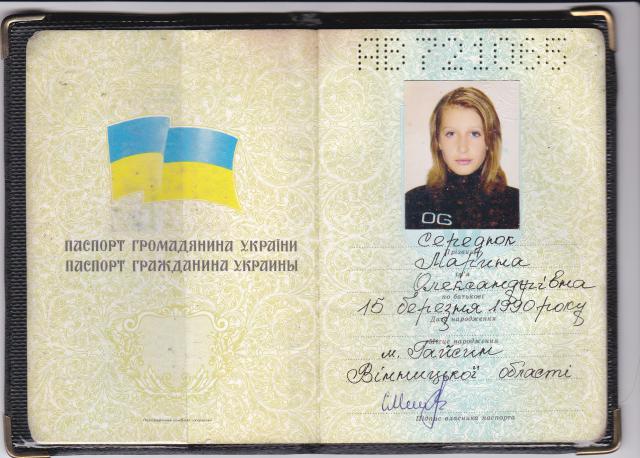 ПАСПОРТ ГРОМАДЯНИНА УКРАЇНИ
ПАСПОРТ ГРАЖДАНИНА УКРАИНЫ
АВ 721055
OG
Середюк
Прізвище
Марина
Ім'я
Олександрівна
по батькові
15 березня 1990 року
Дата народження
Місце народження
м. Гайсин
Вінницької області
Підпис власника паспорта